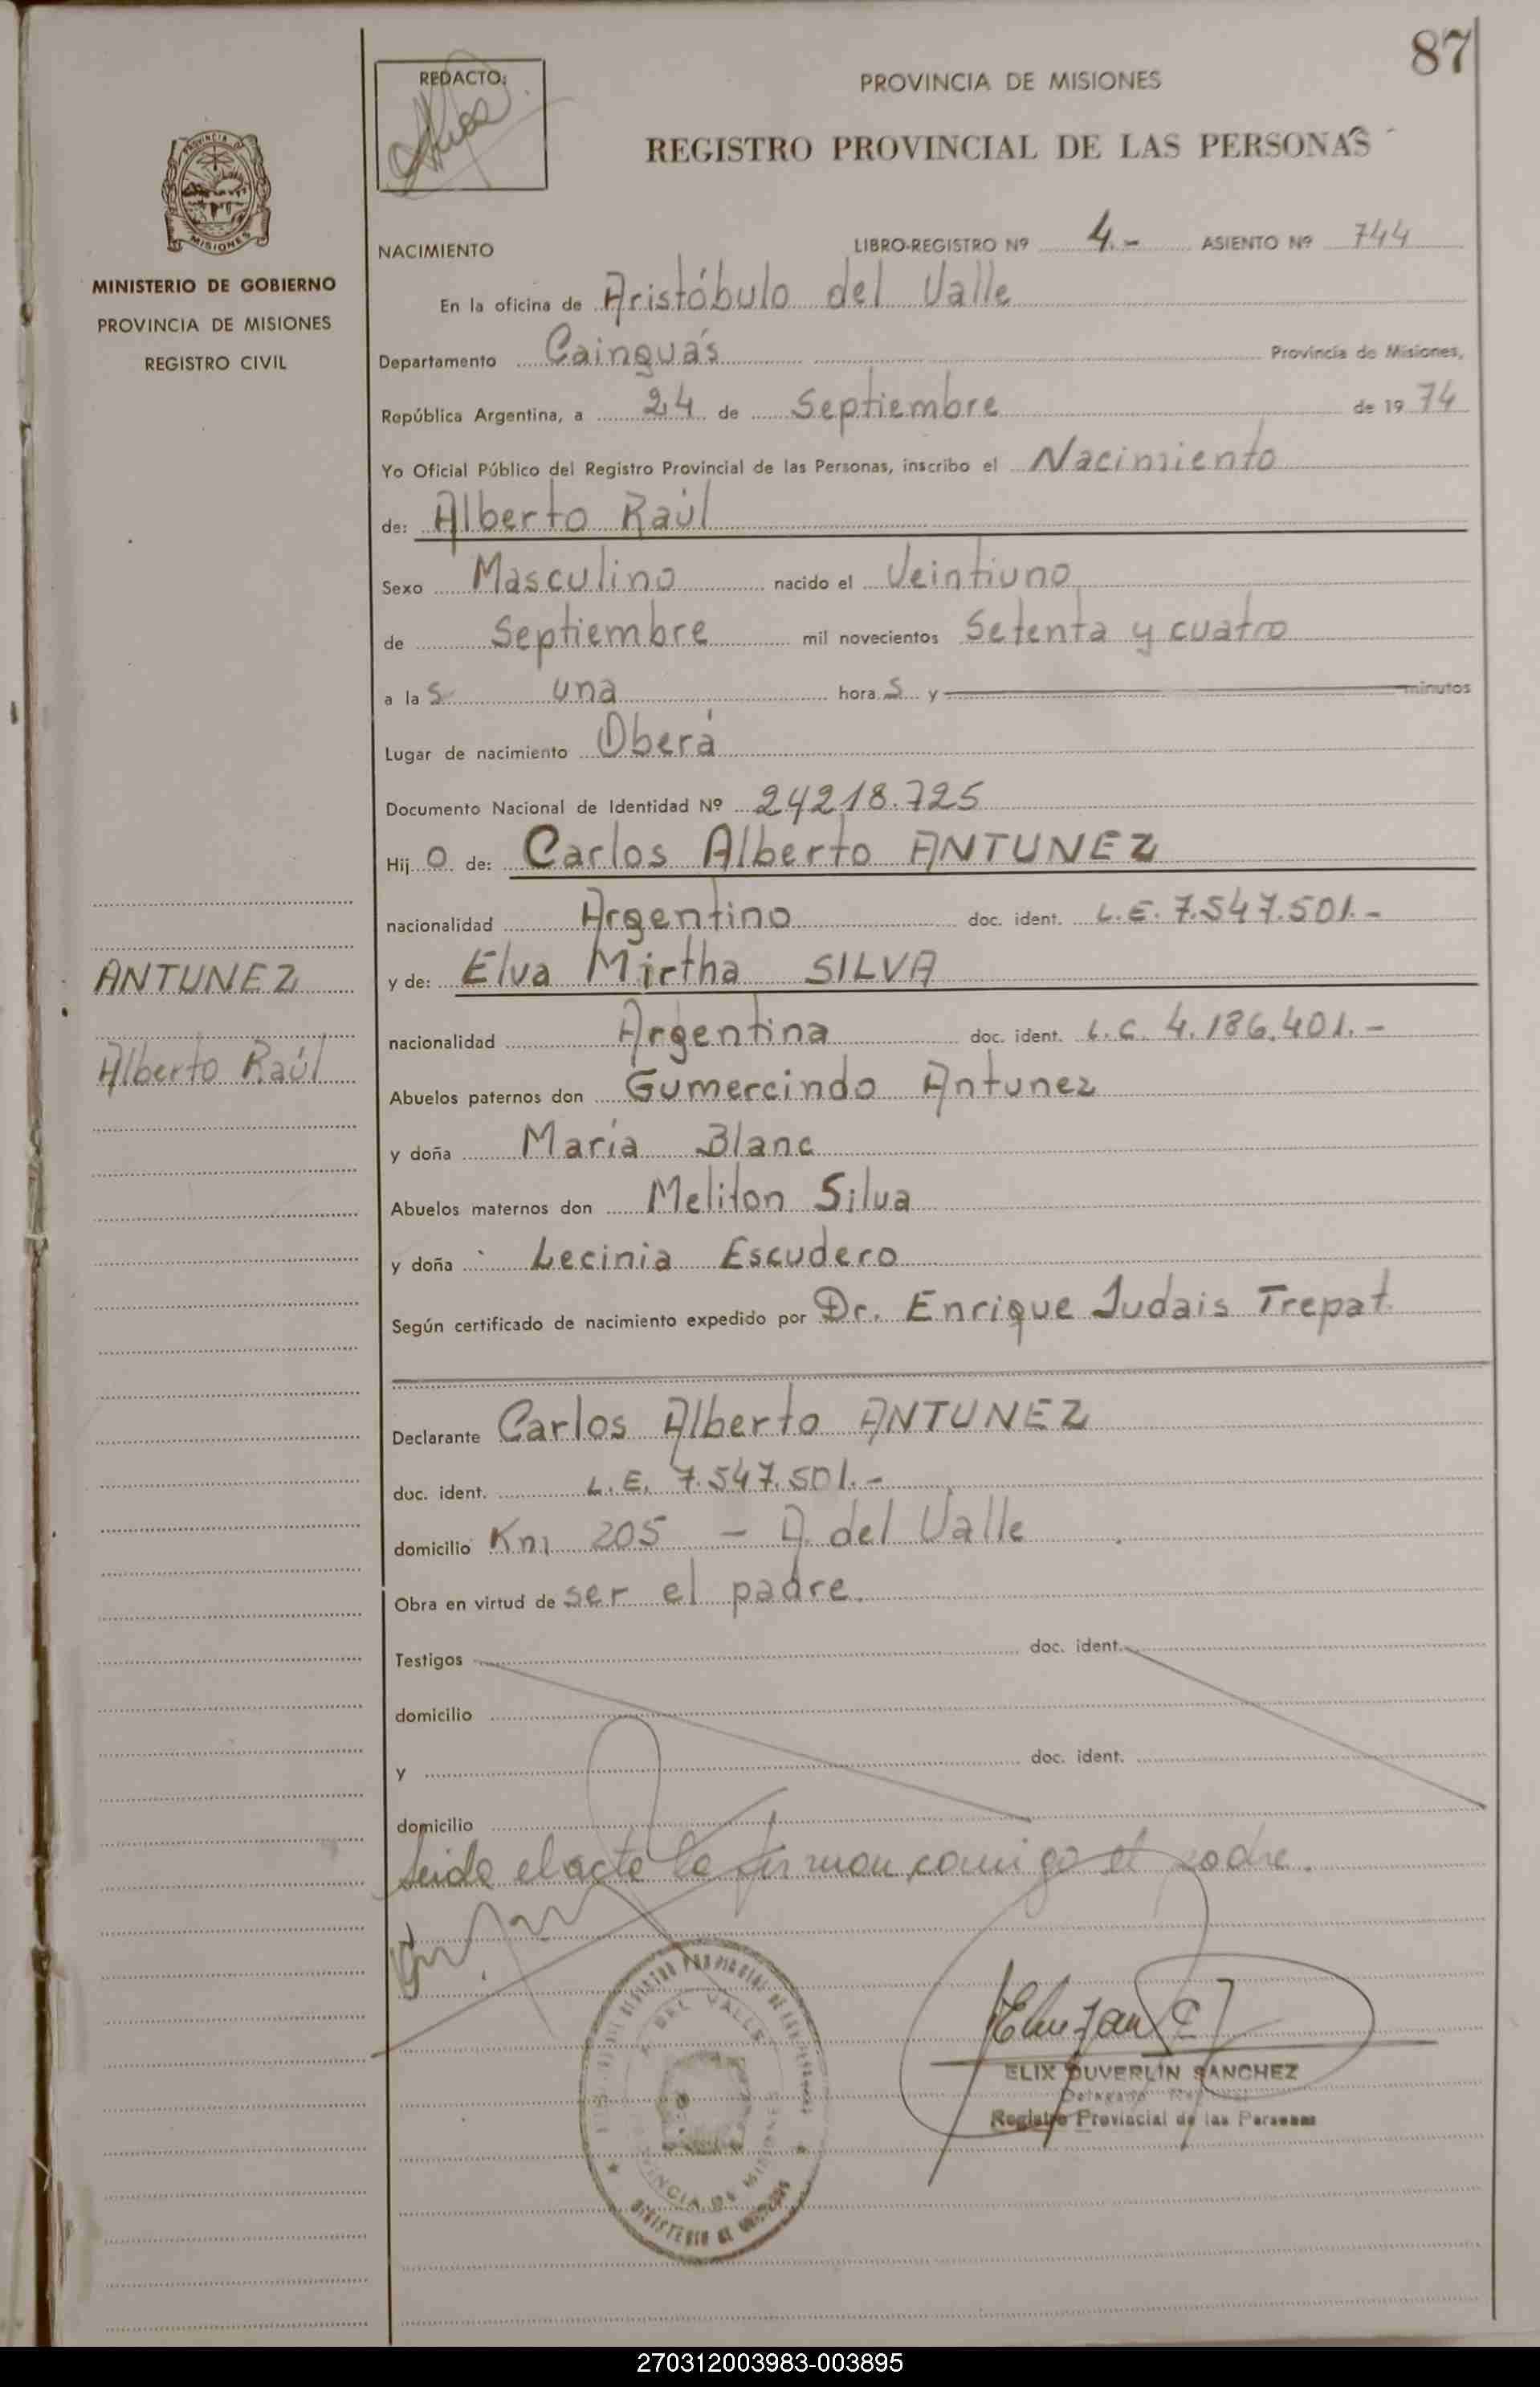 87
REDACTO:
PROVINCIA DE MISIONES
REGISTRO PROVINCIAL DE LAS PERSONAS
PROVINCIA DE
MISIONES
MINISTERIO DE GOBIERNO
PROVINCIA DE MISIONES
REGISTRO CIVIL
NACIMIENTO LIBRO-REGISTRO Nº 4.- ASIENTO Nº 744
En la oficina de Aristóbulo del Valle
Departamento Cainguás Provincia de Misiones,
República Argentina, a 24 de Septiembre de 19 74
Yo Oficial Público del Registro Provincial de las Personas, inscribo el Nacimiento
de: Alberto Raúl
Sexo Masculino nacido el Veintiuno
de Septiembre mil novecientos Setenta y cuatro
a la s una hora s y minutos
Lugar de nacimiento Oberá
Documento Nacional de Identidad Nº 24218.725
Hij o de: Carlos Alberto ANTUNEZ
nacionalidad Argentino doc. ident. L.E. 7.547.501.-
y de: Elva Mirtha SILVA
nacionalidad Argentina doc. ident. L.C. 4.186.401.-
ANTUNEZ
Alberto Raúl
Abuelos paternos don Gumercindo Antunez
y doña María Blanc
Abuelos maternos don Meliton Silva
y doña Lecinia Escudero
Según certificado de nacimiento expedido por Dr. Enrique Judais Trepat.
Declarante Carlos Alberto ANTUNEZ
doc. ident. L.E. 7.547.501.-
domicilio Km 205 - A. del Valle
Obra en virtud de ser el padre.
Testigos doc. ident.
domicilio
y doc. ident.
domicilio
Leida el acta la firman comigo el padre.
REGISTRO PROVINCIAL DE LAS PERSONAS
A. DEL VALLE
PROVINCIA DE MISIONES
MINISTERIO DE GOBIERNO
ELIX DUVERLIN SANCHEZ
Delegado
Registro Provincial de las Personas
270312003983-003895